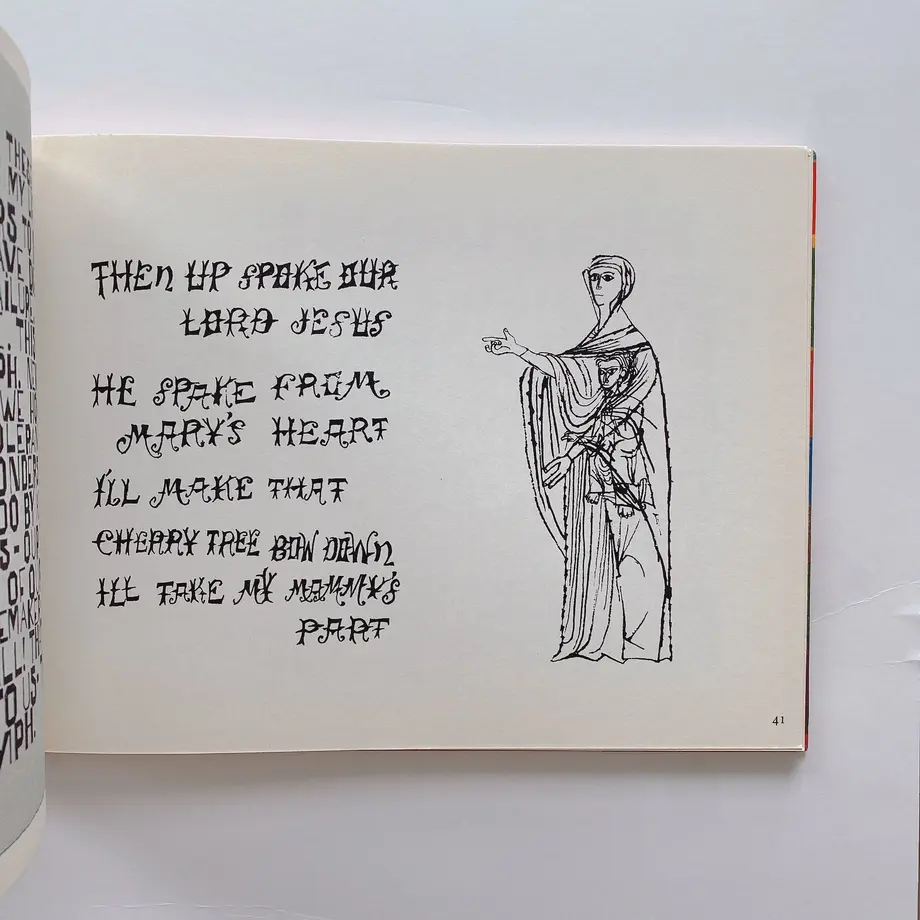 THESE
MY
TO
THIS
BY
OF
TO US-
THEN UP SPOKE OUR
LORD JESUS
HE SPAKE FROM
MARY'S HEART
I'LL MAKE THAT
CHERRY TREE BOW DOWN
ILL TAKE MY MAMMY'S
PART
41